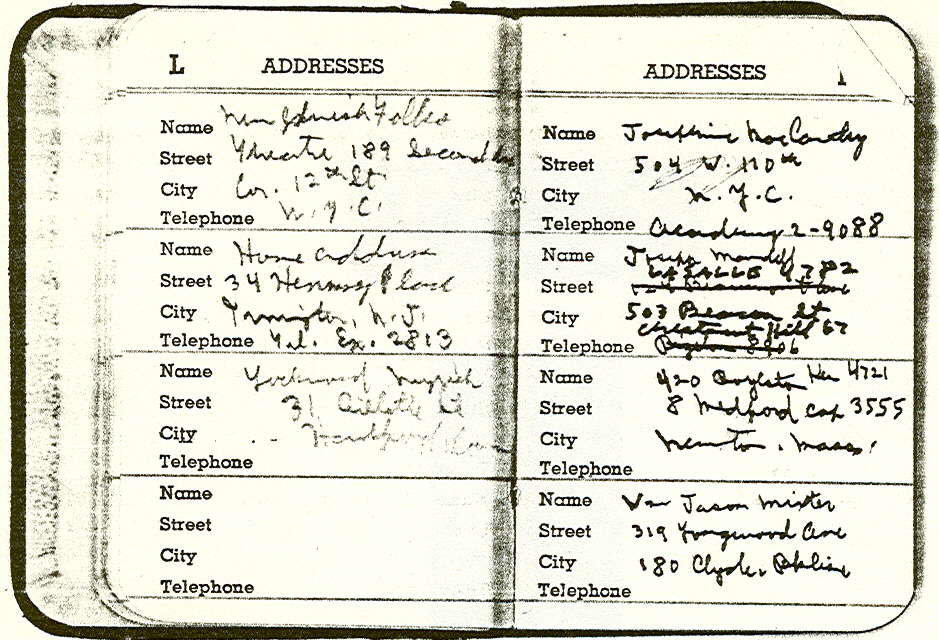 L ADDRESSES
Name New Jewish Folks
Street Theatre 189 Second
City Co. 12th St
Telephone N.Y.C.
Name Home address
Street 34 Hennesy Place
City Irvington, N.J.
Telephone Tel. Ex. 2813
Name
Street 31 St
City
Telephone
Name
Street
City
Telephone
ADDRESSES
Name Josephine MacCarthy
Street 504 W. 110th
City N.Y.C.
Telephone Academy 2-9088
Name Joseph
LASALLE 4782
Street
City 503 Beacon St
Chestnut Hill 67
Telephone 8906
Name 420 Boylston Ken 4721
Street 8 Medford cap 3555
City Newton, Mass.
Telephone
Name Jason Mixter
Street 319 Longwood Ave
City 180 Clyde, Bkline
Telephone